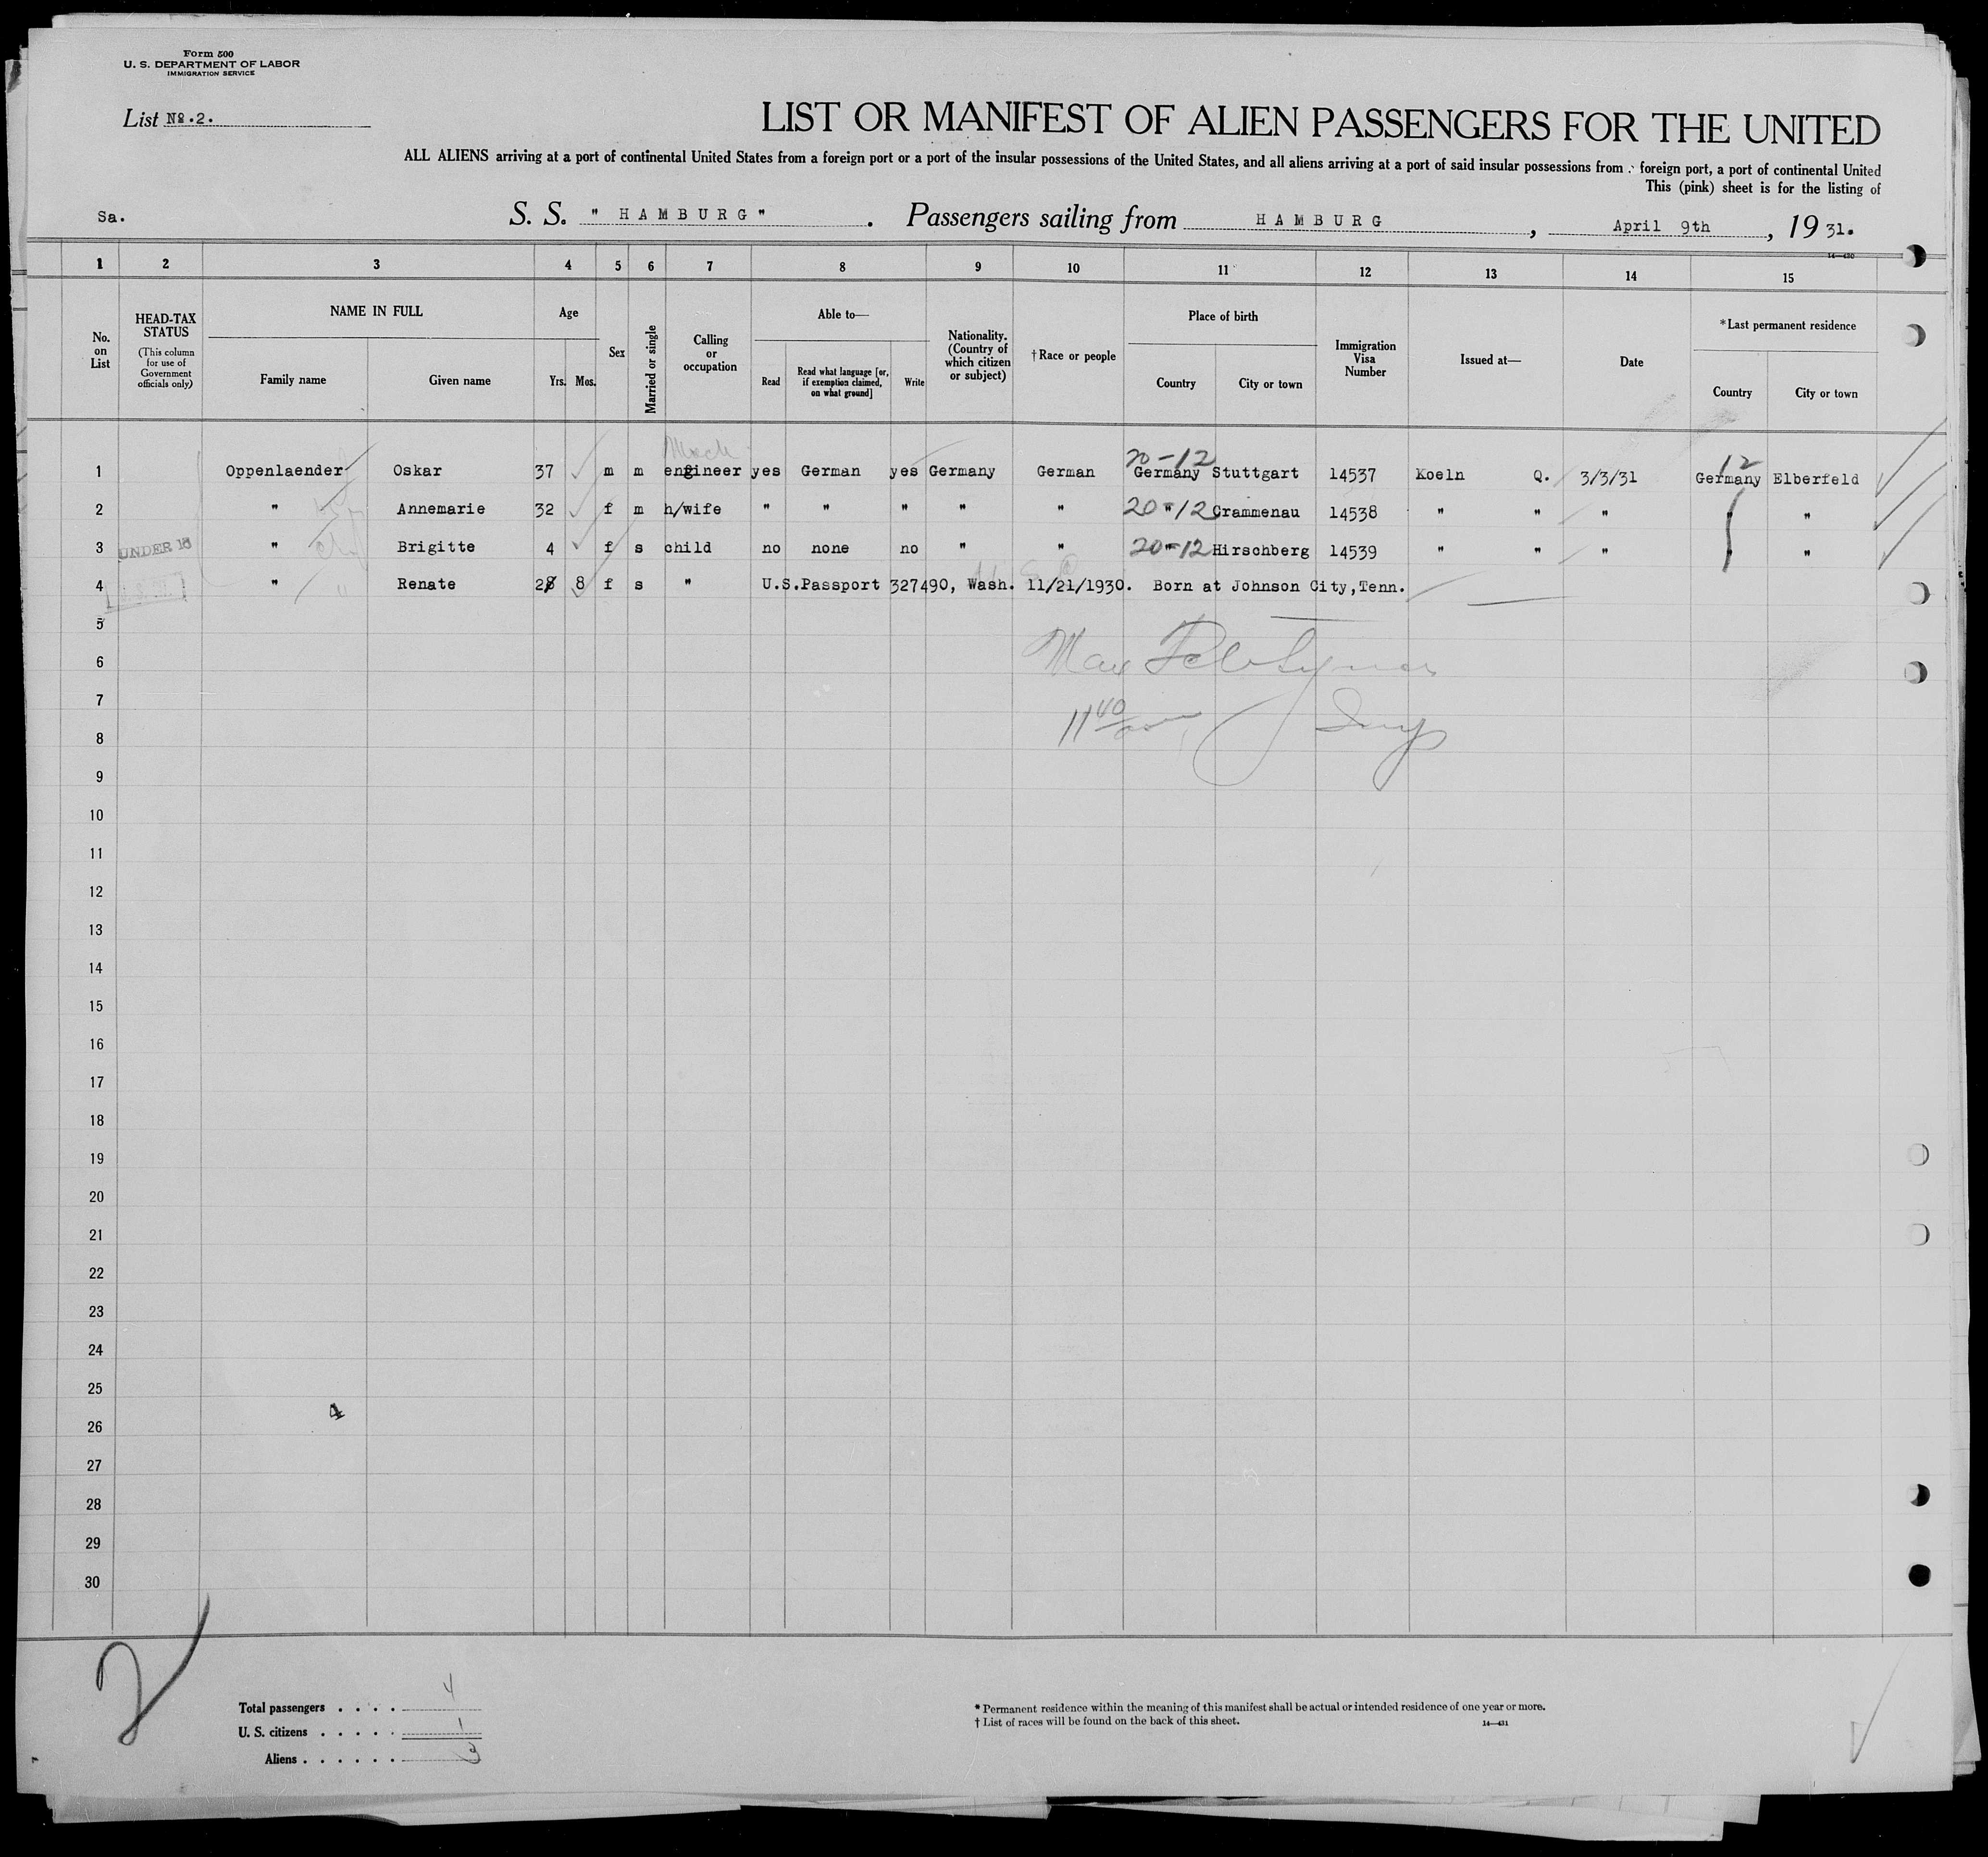 Form 500
U. S. DEPARTMENT OF LABOR
IMMIGRATION SERVICE
List No.2.
LIST OR MANIFEST OF ALIEN PASSENGERS FOR THE UNITED
ALL ALIENS arriving at a port of continental United States from a foreign port or a port of the insular possessions of the United States, and all aliens arriving at a port of said insular possessions from foreign port, a port of continental United
This (pink) sheet is for the listing of
Sa. S. S. "HAMBURG". Passengers sailing from HAMBURG, April 9th, 1931.
14—430
1 2 3 4 5 6 7 8 9 10 11 12 13 14 15
No. on List HEAD-TAX STATUS (This column for use of Government officials only) NAME IN FULL Family name Given name Age Yrs. Mos. Sex Married or single Calling or occupation Able to— Read Read what language [or, if exemption claimed, on what ground] Write Nationality. (Country of which citizen or subject) †Race or people Place of birth Country City or town Immigration Visa Number Issued at— Date *Last permanent residence Country City or town
Mech 20-12 12
1 Oppenlaender Oskar 37 m m engineer yes German yes Germany German Germany Stuttgart 14537 Koeln Q. 3/3/31 Germany Elberfeld
2 " Annemarie 32 f m h/wife " " " " " 20-12 " Crammenau 14538 " " " " "
3 UNDER 16 " Brigitte 4 f s child no none no " " 20-12 " Hirschberg 14539 " " " " "
4 " Renate 2 8 f s " U.S.Passport 327490, Wash. 11/21/1930. Born at Johnson City,Tenn.
5
6 Max
7
8 11 40 Insp
9
10
11
12
13
14
15
16
17
18
19
20
21
22
23
24
25
26 4
27
28
29
30
2
Total passengers . . . . 4
U. S. citizens . . . . . 1
Aliens . . . . . . 3
* Permanent residence within the meaning of this manifest shall be actual or intended residence of one year or more.
† List of races will be found on the back of this sheet. 14—431